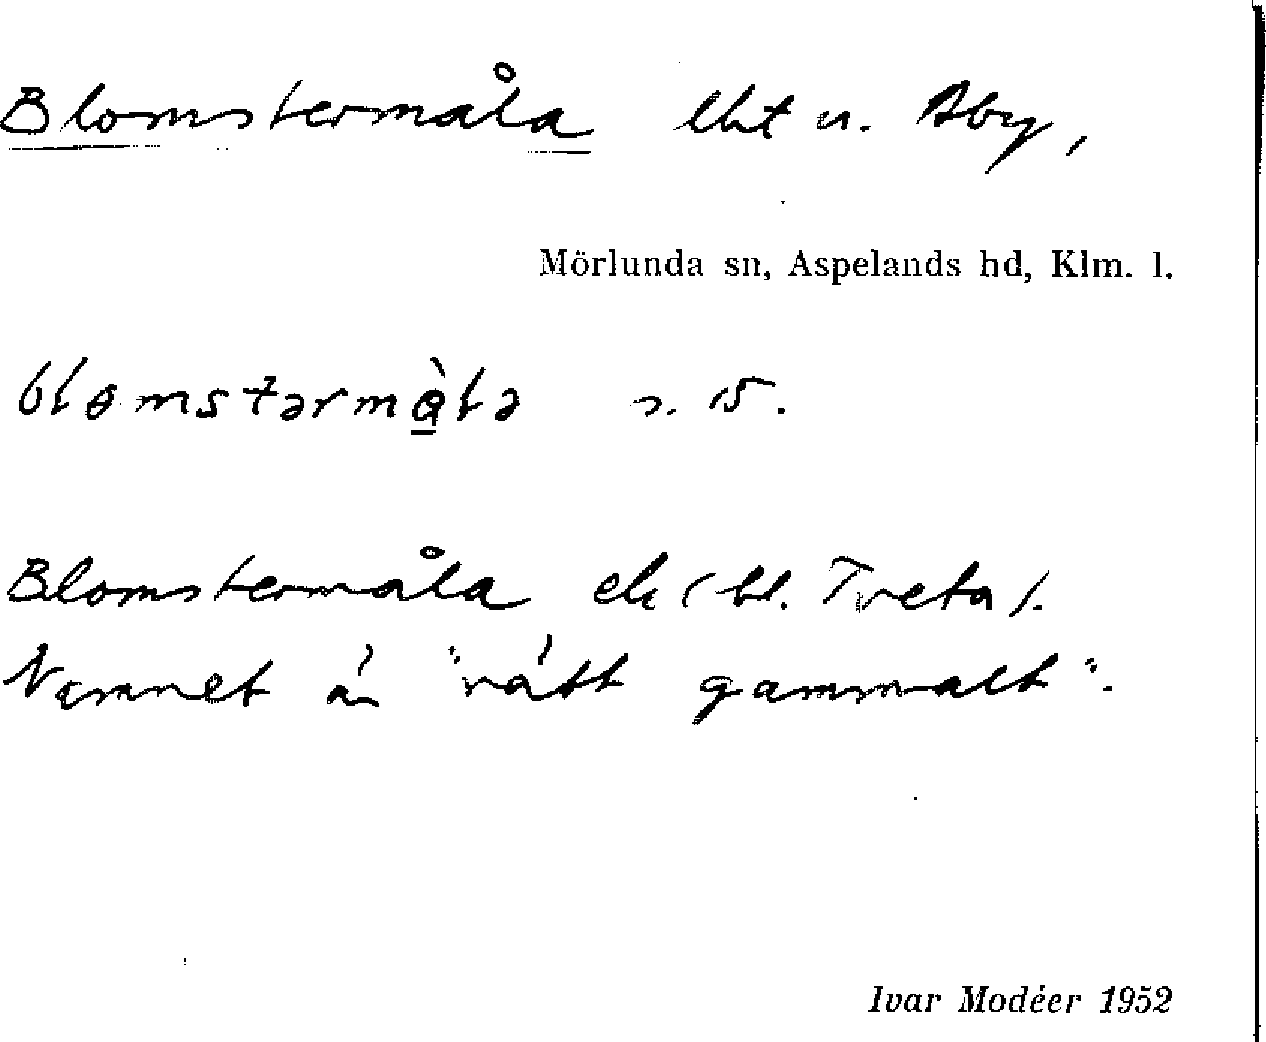 Blomstermåla lht u. Åby,
Mörlunda sn, Aspelands hd, Klm. l.
blomstərmàlə n. 15.
Blomstermåla ek (bl. Tveta).
Namnet är "rätt gammalt".
Ivar Modéer 1952